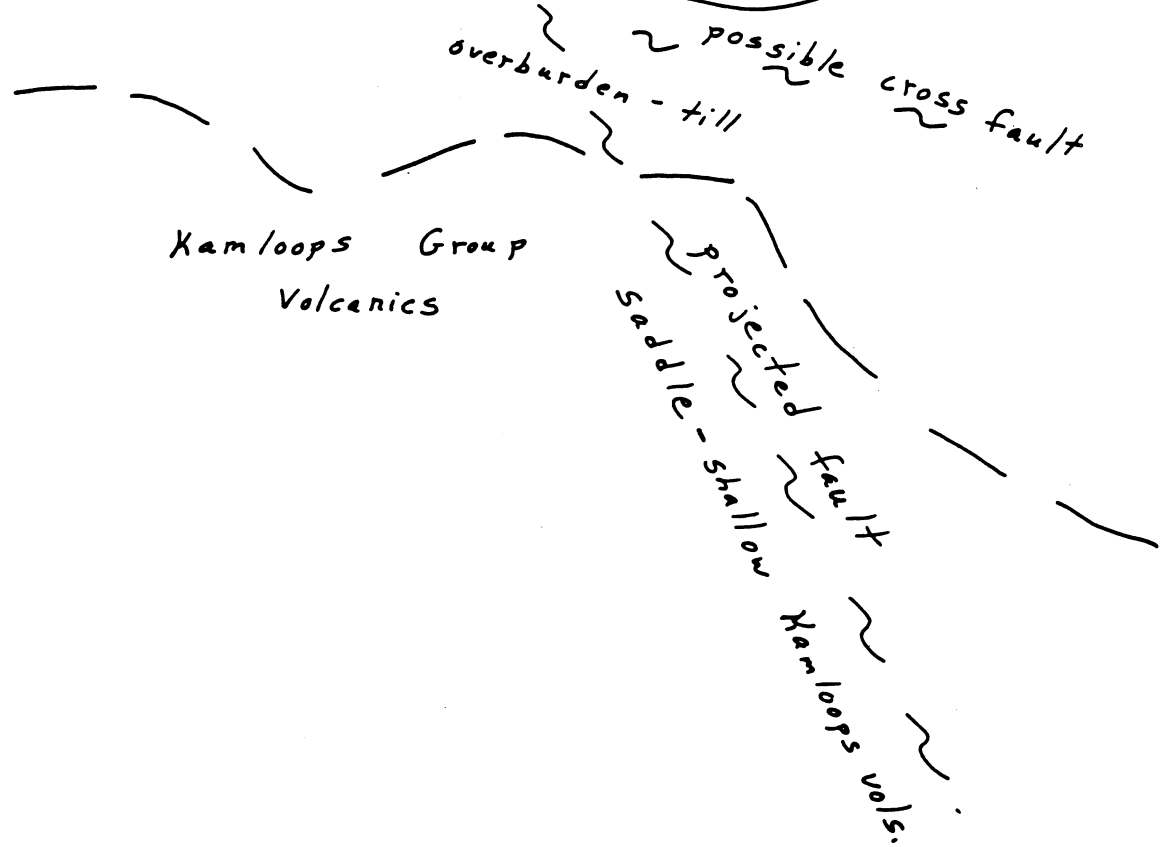 possible cross fault
overburden - till
Kamloops Group
Volcanics
projected fault
saddle - shallow Kamloops vols.